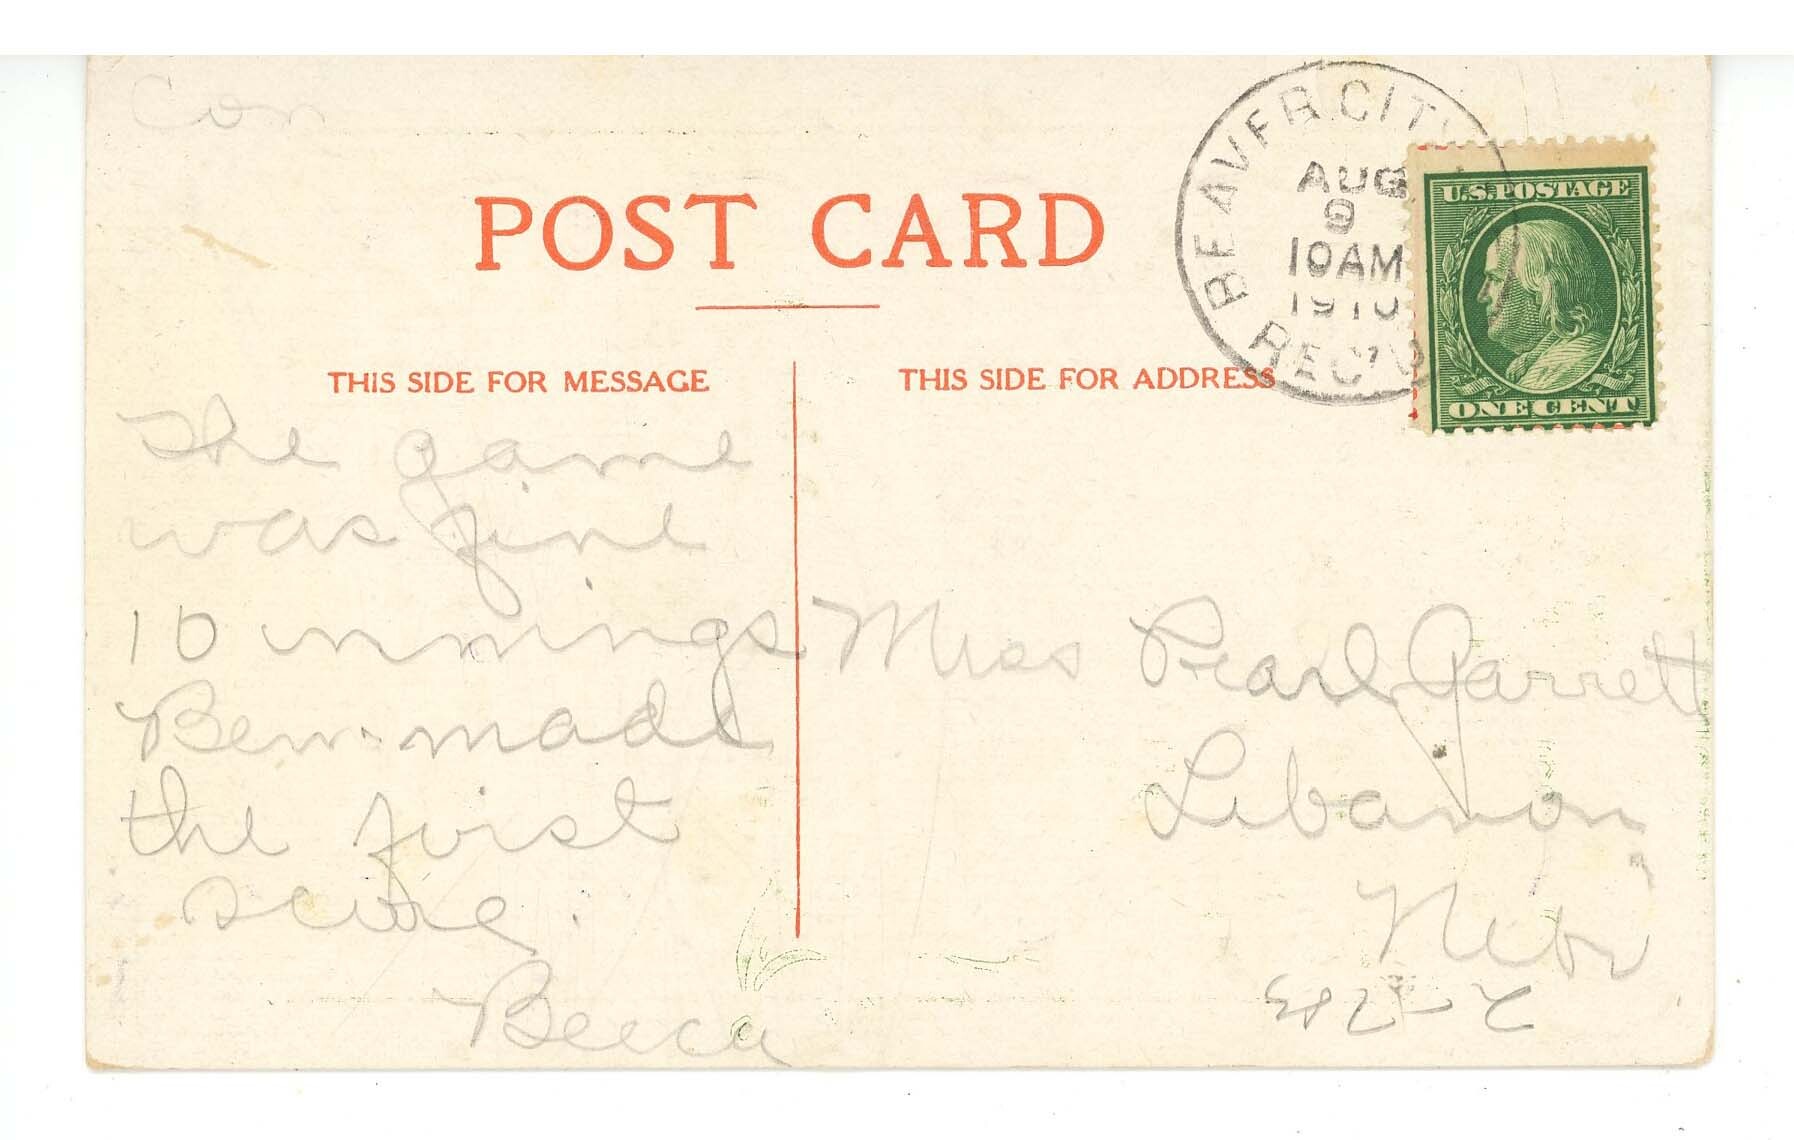 Con
POST CARD
BEAVER CITY
AUG
9
10AM
1910
REC'D
U.S. POSTAGE
ONE CENT
THIS SIDE FOR MESSAGE
THIS SIDE FOR ADDRESS
The game
was fine
10 innnings
Ben made
the first
scure.
Beeca
Miss Pearl Garrett
Lebanon
Nebr